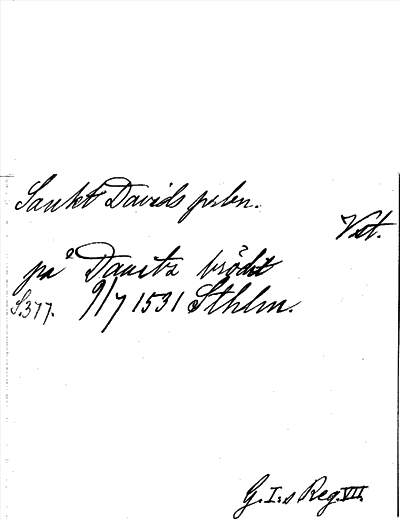 Sankt Davids prbn.
Vst.
på Dauitz brödit
S.377. 9/7 1531 Sthlm.
G.I:s Reg. VII.